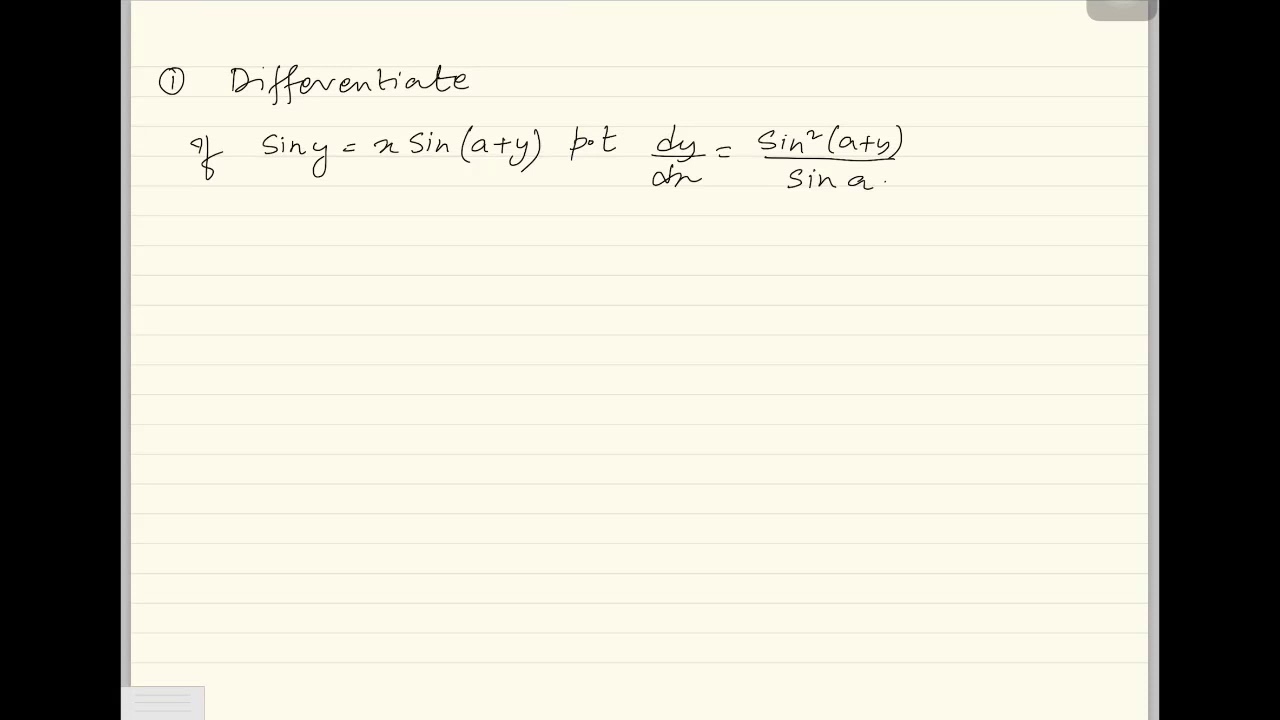 ① Differentiate
If sin y = x sin (a+y) p.t dy/dx = sin²(a+y)/sin a.